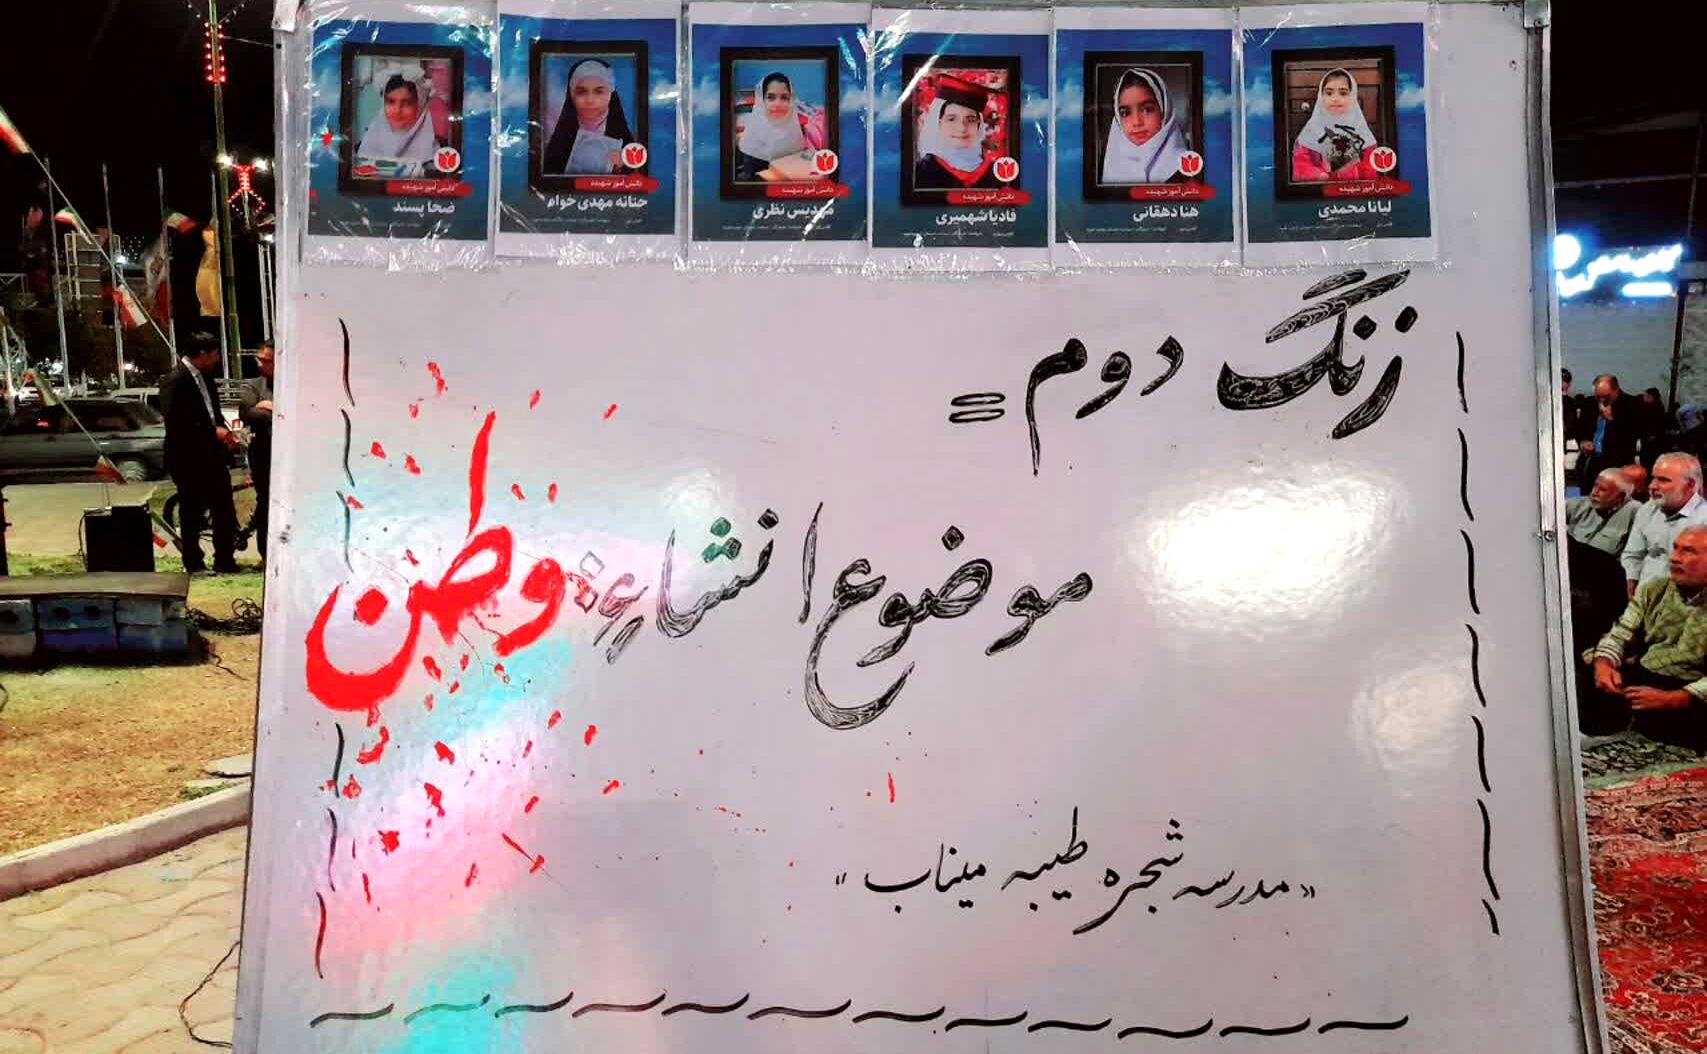 دانش آموز شهیده
لیانا محمدی
دانش آموز شهیده
هنا دهقانی
دانش آموز شهیده
فادیا شهمیری
دانش آموز شهیده
مهدیس نظری
دانش آموز شهیده
حنانه مهدی خواه
دانش آموز شهیده
ضحا پسند
زنگ دوم =
موضوع انشاء: وطن
«مدرسه شجره طیبه میناب»